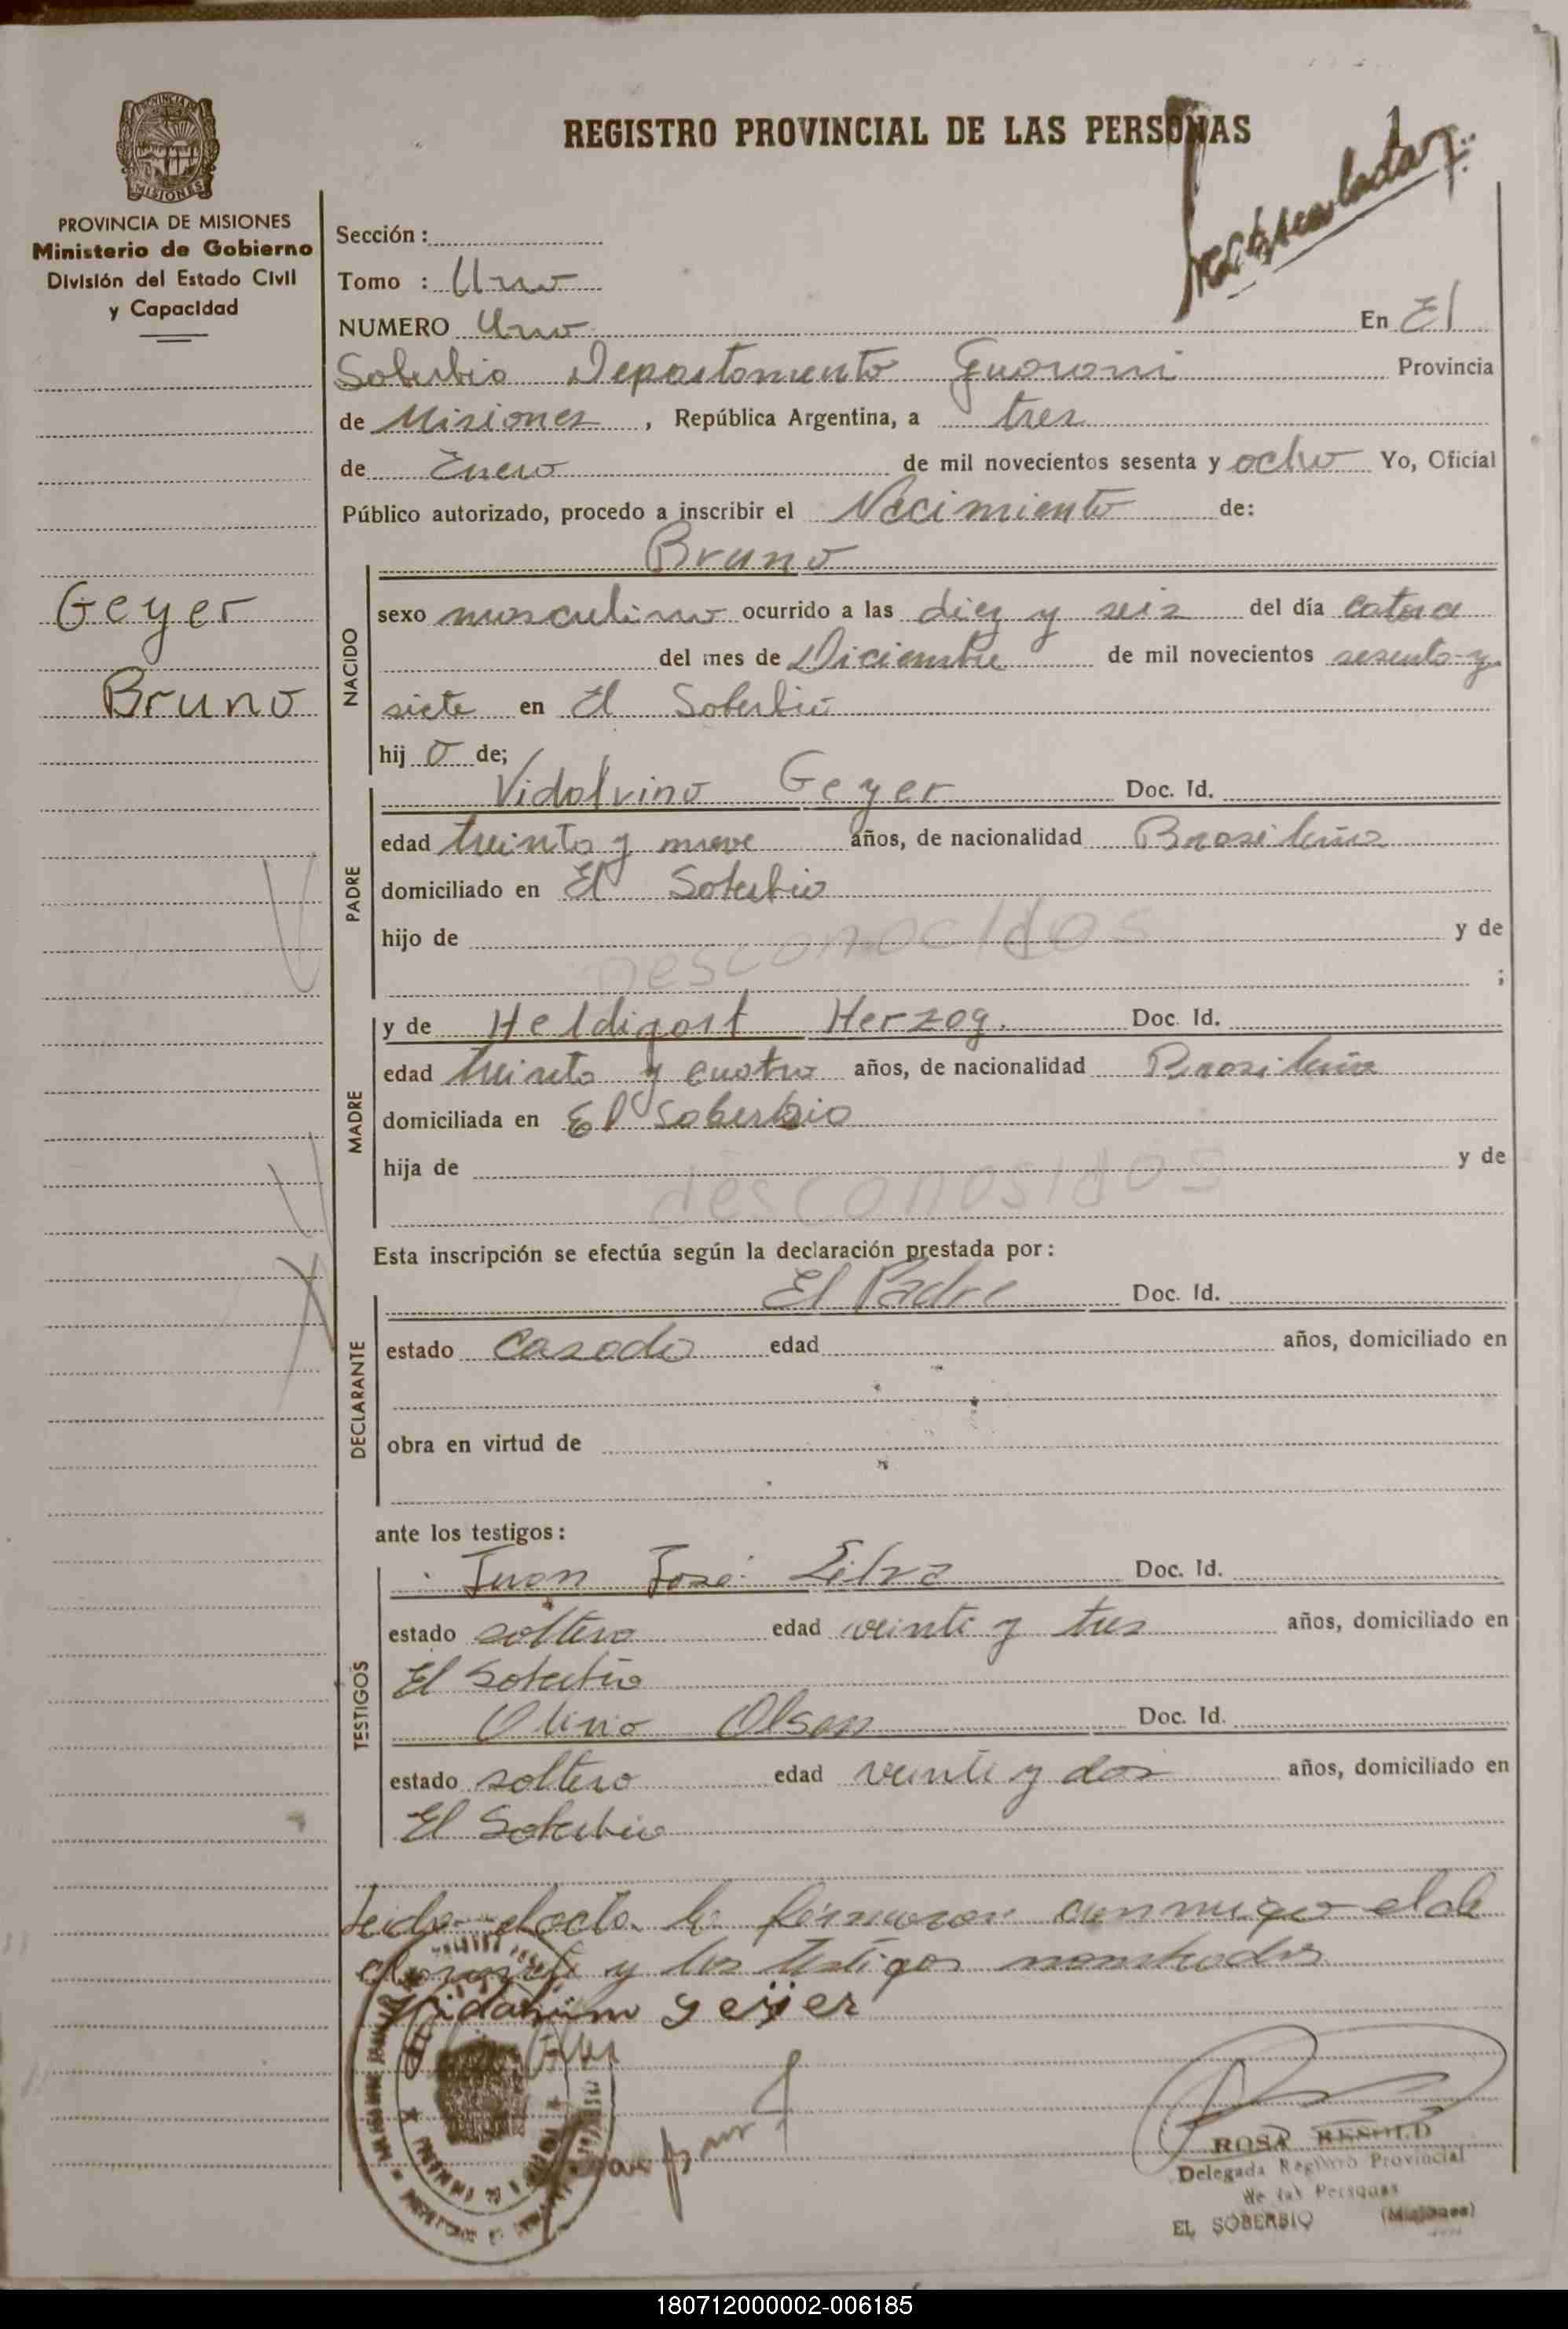 PROVINCIA DE MISIONES
Ministerio de Gobierno
División del Estado Civil
y Capacidad
Geyer
Bruno
REGISTRO PROVINCIAL DE LAS PERSONAS
Sección :
Tomo : Uno
NUMERO Uno En El
Soberbio Departamento Guarani Provincia
de Misiones , República Argentina, a tres
de Enero de mil novecientos sesenta y ocho Yo, Oficial
Público autorizado, procedo a inscribir el Nacimiento de:
Bruno
NACIDO
sexo masculino ocurrido a las diez y seis del día catorce
del mes de Diciembre de mil novecientos sesenta y
siete en El Soberbio
hij o de;
PADRE
Vidalvino Geyer Doc. Id.
edad treinta y nueve años, de nacionalidad Brasileña
domiciliado en El Soberbio
hijo de desconocidos y de
;
MADRE
y de Heldigart Herzog. Doc. Id.
edad treinta y cuatro años, de nacionalidad Brasileña
domiciliada en El Soberbio
hija de desconosidos y de
Esta inscripción se efectúa según la declaración prestada por:
DECLARANTE
El Padre Doc. Id.
estado Casado edad años, domiciliado en
obra en virtud de
ante los testigos:
TESTIGOS
Juan José Silva Doc. Id.
estado soltero edad veinte y tres años, domiciliado en
El Soberbio
Olino Olsen Doc. Id.
estado soltero edad veinte y dos años, domiciliado en
El Soberbio
Leida el acta la firmaron conmigo el de
clarante y los testigos nombrados
geyer
ROSA
Delegada Registro Provincial
de las Personas
EL SOBERBIO (Misiones)
180712000002-006185